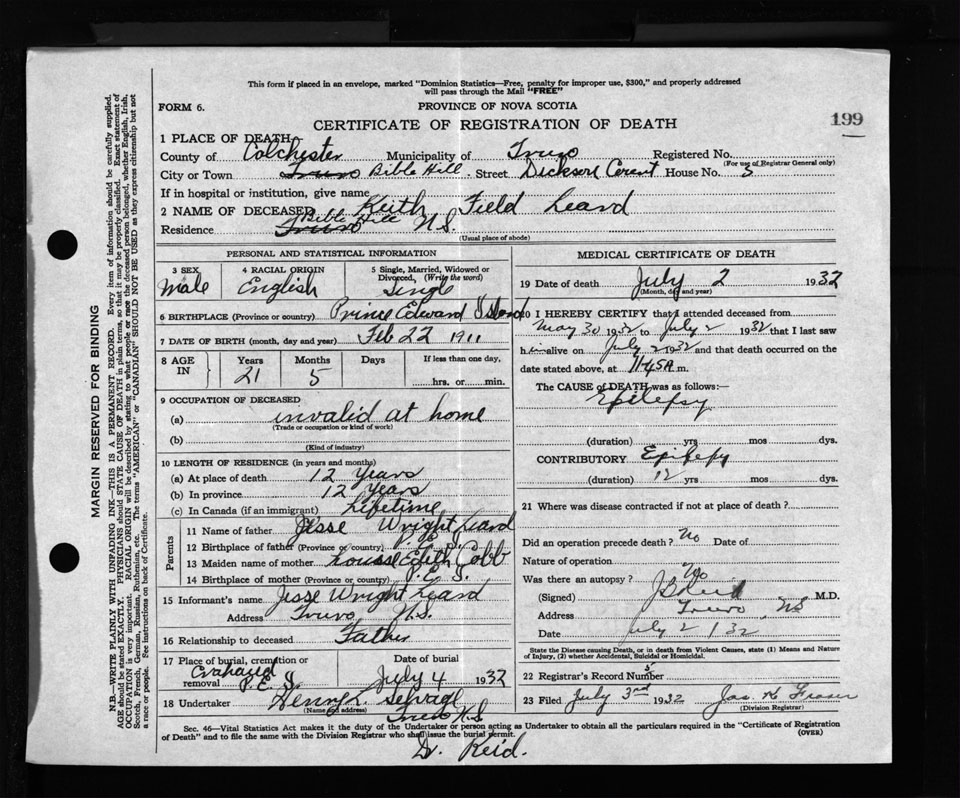 This form if placed in an envelope, marked "Dominion Statistics—Free, penalty for improper use, $300," and properly addressed
will pass through the Mail "FREE"
FORM 6.
PROVINCE OF NOVA SCOTIA
CERTIFICATE OF REGISTRATION OF DEATH
199
1 PLACE OF DEATH
County of Colchester Municipality of Truro Registered No.
(For use of Registrar General only)
City or Town Truro Bible Hill. Street House No. 5
If in hospital or institution, give name
2 NAME OF DECEASED Keith Field Leard
Residence Truro Bible Hill N.S.
(Usual place of abode)
PERSONAL AND STATISTICAL INFORMATION
3 SEX 4 RACIAL ORIGIN 5 Single, Married, Widowed or Divorced, (Write the word)
Male English Single
6 BIRTHPLACE (Province or country) Prince Edward Island
7 DATE OF BIRTH (month, day and year) Feb 22 1911
8 AGE IN Years Months Days If less than one day,
21 5 hrs. or min.
9 OCCUPATION OF DECEASED
(a) invalid at home
(Trade or occupation or kind of work)
(b)
(Kind of industry)
10 LENGTH OF RESIDENCE (in years and months)
(a) At place of death 12 Years
(b) In province 12 Years
(c) In Canada (if an immigrant) Lifetime
Parents
11 Name of father Jesse Wright Leard
12 Birthplace of father (Province or country) P.E.I.
13 Maiden name of mother Edith Cobb
14 Birthplace of mother (Province or country) P.E.I.
15 Informant's name Jesse Wright Leard
Address Truro N.S.
16 Relationship to deceased Father
17 Place of burial, cremation or removal P.E.I.
Date of burial July 4 1932
18 Undertaker Henry L. Selvage
(Name and address) Truro N.S
MEDICAL CERTIFICATE OF DEATH
19 Date of death July 2 1932
(Month, day and year)
20 I HEREBY CERTIFY that I attended deceased from
May 30 1932 to July 2 1932 that I last saw
him alive on July 2 1932 and that death occurred on the
date stated above, at 7.45A m.
The CAUSE of DEATH was as follows:
Epilepsy
(duration) yrs mos dys.
CONTRIBUTORY Epilepsy
(duration) 12 yrs mos dys.
21 Where was disease contracted if not at place of death?
Did an operation precede death? No Date of
Nature of operation
Was there an autopsy? No
(Signed) Reid M.D.
Address Truro NS
Date July 2/32
State the Disease causing Death, or in death from Violent Causes, state (1) Means and Nature
of Injury, (2) whether Accidental, Suicidal or Homicidal.
22 Registrar's Record Number 5
23 Filed July 3rd 1932 Jas. K. Fraser
(Division Registrar)
Sec. 46—Vital Statistics Act makes it the duty of the Undertaker or person acting as Undertaker to obtain all the particulars required in the "Certificate of Registration
of Death" and to file the same with the Division Registrar who shall issue the burial permit.
(OVER)
Dr. Reid.
MARGIN RESERVED FOR BINDING
N.B.—WRITE PLAINLY WITH UNFADING INK—THIS IS A PERMANENT RECORD. Every item of information should be carefully supplied.
AGE should be stated EXACTLY. PHYSICIANS should STATE CAUSE OF DEATH in plain terms, so that it may be properly classified. Exact statement of
OCCUPATION is very important. RACIAL ORIGIN will be described by stating to what people or race the deceased person belonged, whether English, Irish,
Scotch, French, German, Russian, Ruthenian, etc. The terms "AMERICAN" or "CANADIAN" SHOULD NOT BE USED as they express citizenship but not
a race or people. See instructions on back of Certificate.